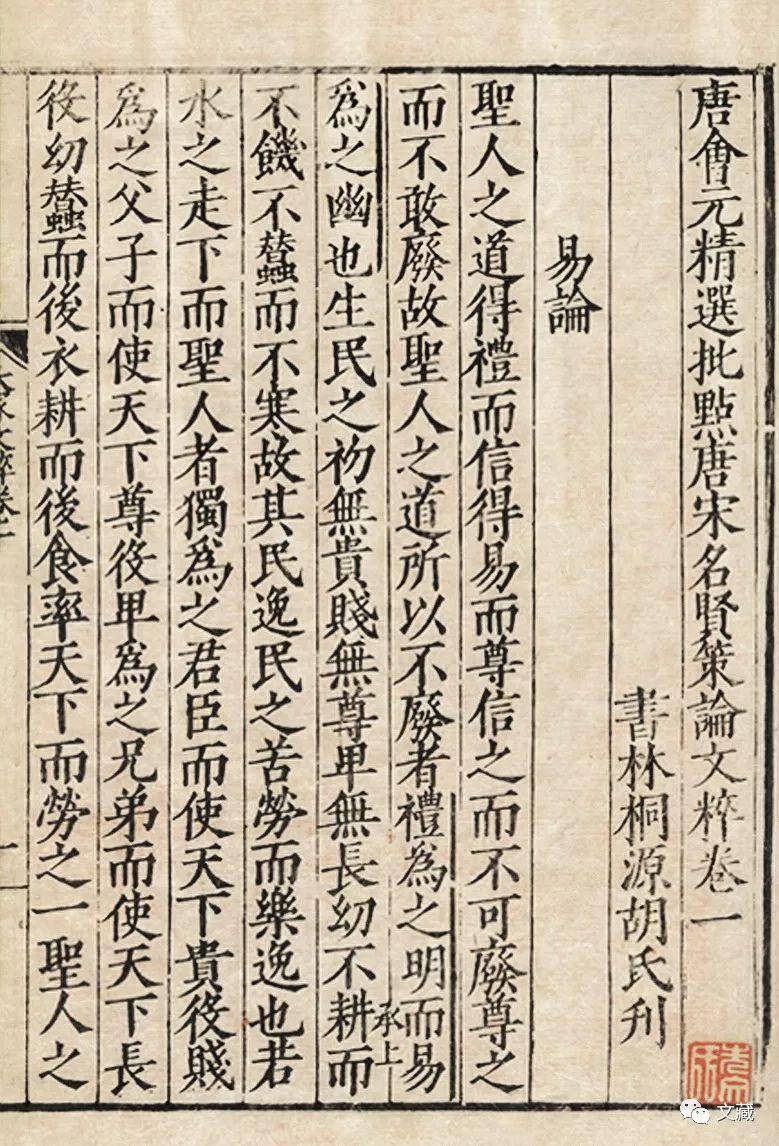 唐會元精選批點唐宋名賢策論文粹卷一
書林桐源胡氏刋
易論
聖人之道得禮而信得易而尊信之而不可廢尊之
而不敢廢故聖人之道所以不廢者禮爲之明而易
承上
爲之幽也生民之初無貴賤無尊卑無長幼不耕而
不饑不蠶而不寒故其民逸民之苦勞而樂逸也若
水之走下而聖人者獨爲之君臣而使天下貴役賤
爲之父子而使天下尊役卑爲之兄弟而使天下長
役幼蠶而後衣耕而後食率天下而勞之一聖人之
文藏